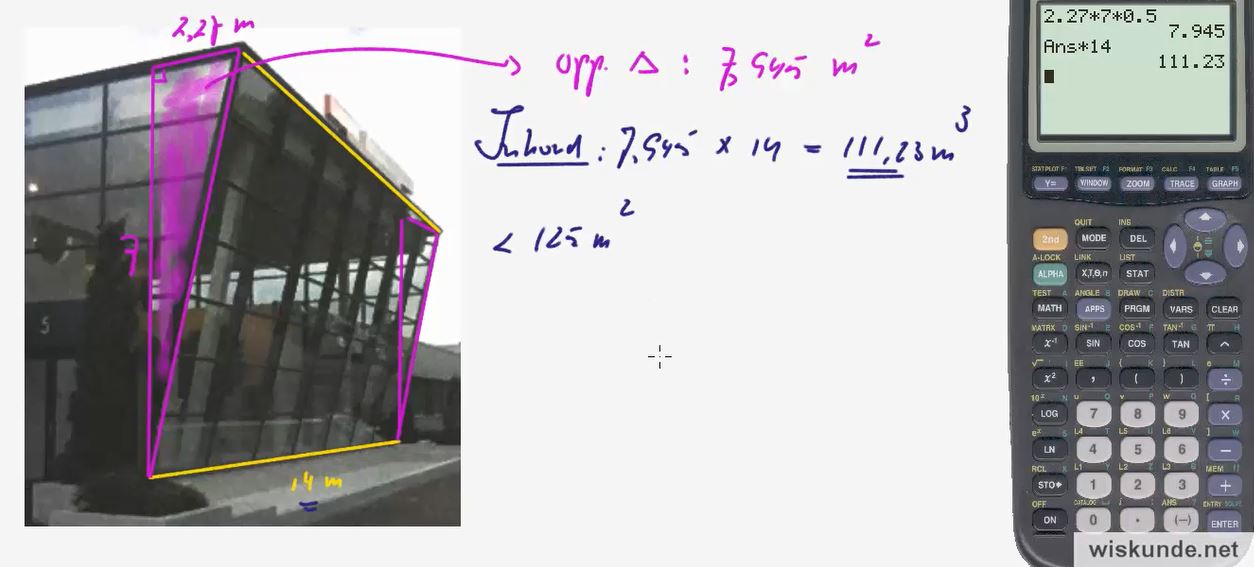 2,27 m
opp. Δ : 7,945 m²
Inhoud : 7,945 × 14 = 111,23 m³
< 125 m²
7
5
14 m
2.27*7*0.5
7.945
Ans*14
111.23
STAT PLOT F1 TBLSET F2 FORMAT F3 CALC F4 TABLE F5
Y= WINDOW ZOOM TRACE GRAPH
QUIT INS
2nd MODE DEL
A-LOCK LINK LIST
ALPHA X,T,θ,n STAT
TEST A ANGLE B DRAW C DISTR
MATH APPS PRGM VARS CLEAR
MATRX D SIN⁻¹ E COS⁻¹ F TAN⁻¹ G π H
x⁻¹ SIN COS TAN ^
√ I EE J { K } L e M
x² , ( ) ÷
10ˣ N u O v P w Q [ R
LOG 7 8 9 ×
eˣ S L4 T L5 U L6 V ] W
LN 4 5 6 −
RCL X L1 Y L2 Z L3 θ MEM "
STO▸ 1 2 3 +
OFF CATALOG i ANS ? ENTRY SOLVE
ON 0 . (−) ENTER
wiskunde.net